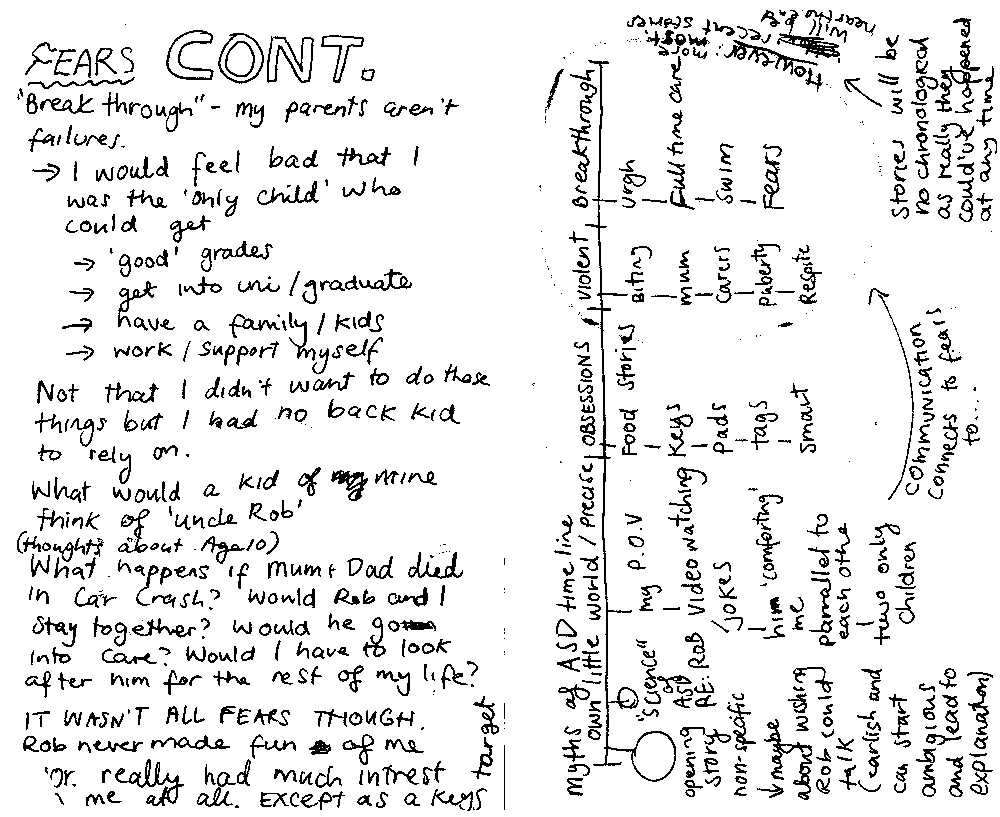 FEARS CONT.
"Break through" - my parents aren't
failures.
→ I would feel bad that I
was the 'only child' who
could get
→ 'good' grades
→ get into uni / graduate
→ have a family / kids
→ work / support myself
Not that I didn't want to do those
things but I had no back kid
to rely on.
What would a kid of mine
think of 'uncle Rob'
(thoughts about Age 10)
What happens if Mum + Dad died
in Car Crash? Would Rob and I
stay together? Would he go
into Care? Would I have to look
after him for the rest of my life?
IT WASN'T ALL FEARS THOUGH.
Rob never made fun of me
Or really had much intrest
me at all. EXCEPT as a Keys
target
Myths of ASD timeline
own little world / Precise
OBSESSIONS
Violent
Breakthrough
opening
story
non-specific
maybe
about wishing
Rob could
talk
(earlish and
can start
ambigious
and lead to
explanation)
"Science"
of
ASD
RE: ROB
my P.O.V
Video watching
jokes
him 'comforting'
me
Parralled to
each othe
two only
children
Food Stories
Keys
Pads
tags
Smart
Biting
mum
Carers
Puberty
Respite
Urgh
Full time care
Swim
Fears
COMMUNICATION
connects to fears
to....
Stories will be
no chronological
as really they
could've happened
at any time
However:
more
most
recent stories
will be
near the end